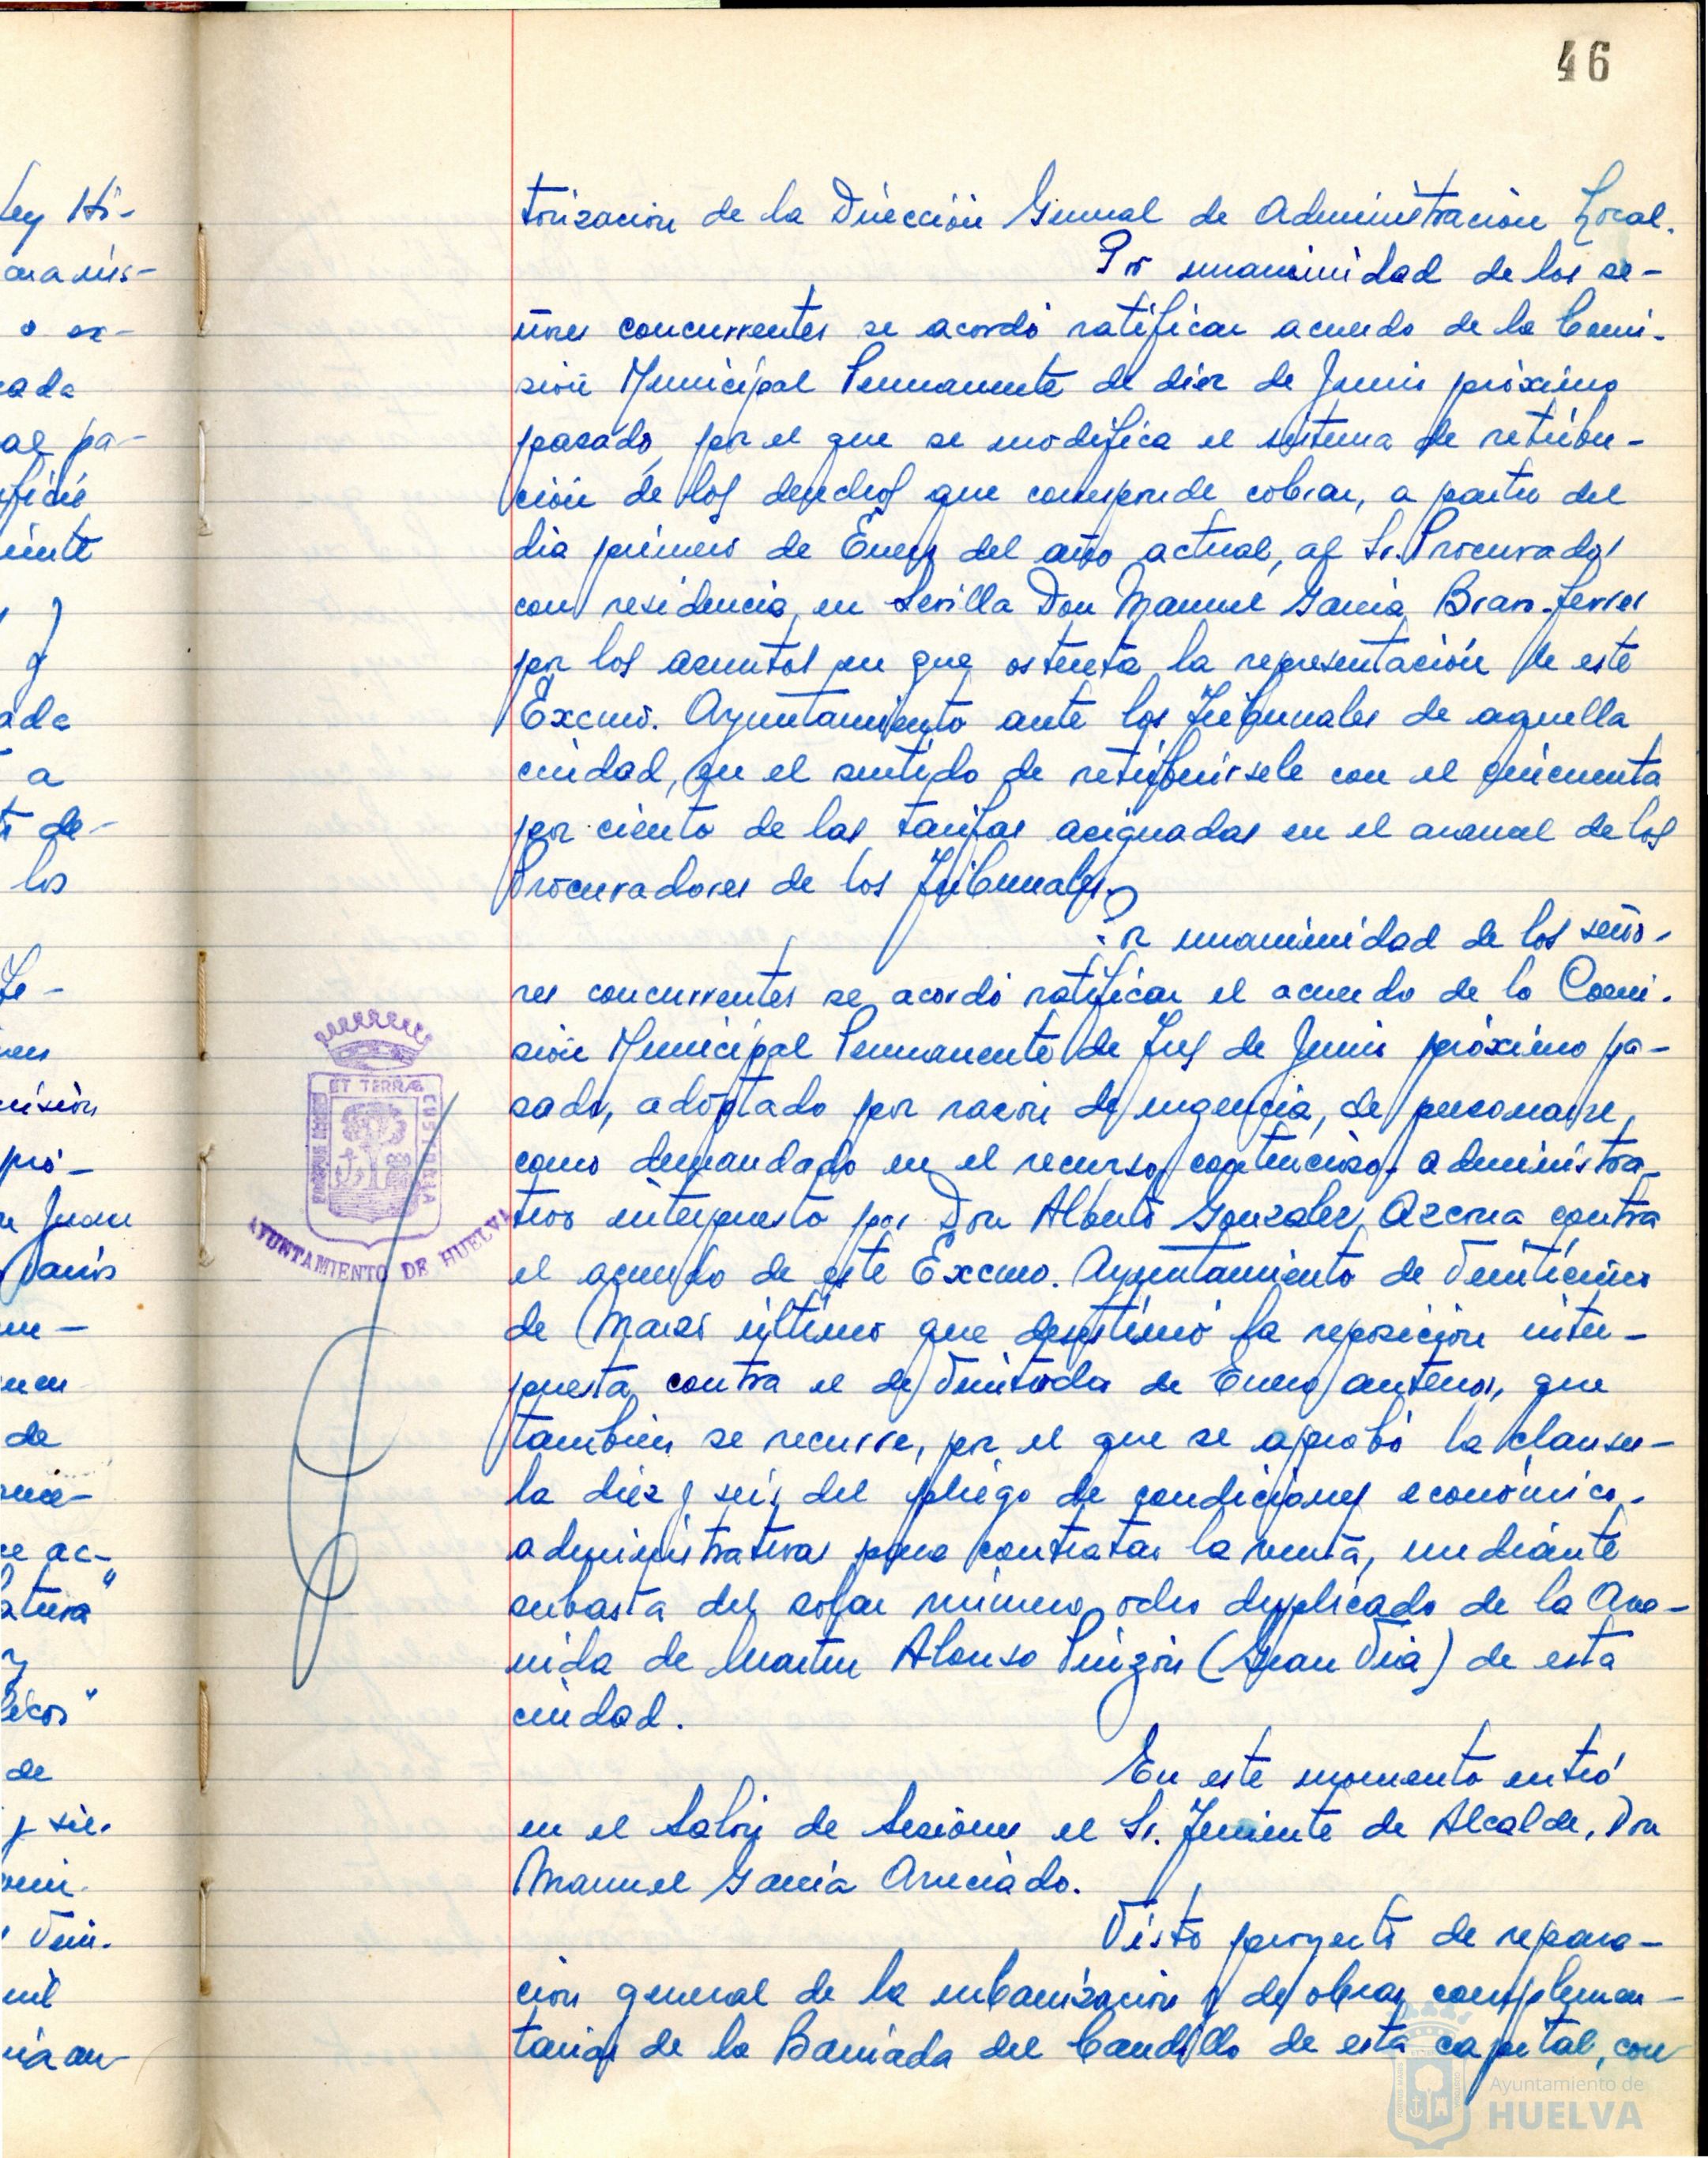 46
torización de la Dirección General de Administración Local.
Por unanimidad de los se-
ñores concurrentes se acordó ratificar acuerdo de la Comi-
sión Municipal Permanente de diez de Junio próximo
pasado, por el que se modifica el sistema de retribu-
ción de los derechos que corresponde cobrar, a partir del
dia primero de Enero del año actual, al Sr. Procurador
con residencia en Sevilla Don Manuel García Bravo-Ferrer
por los asuntos en que ostenta la representación de este
Excmo. Ayuntamiento ante los Tribunales de aquella
ciudad, en el sentido de retribuirsele con el cincuenta
por ciento de las tarifas asignadas en el arancel de los
Procuradores de los Tribunales.
Por unanimidad de los seño-
res concurrentes se acordó ratificar el acuerdo de la Comi-
sión Municipal Permanente de Tres de Junio próximo pa-
sado, adoptado por razón de urgencia, de personarse
como demandado en el recurso contencioso-administra-
tivo interpuesto por Don Alberto Gonzalez Azcona contra
el acuerdo de este Excmo. Ayuntamiento de Veinticinco
de Marzo último que desestimó la reposición inter-
puesta contra el de Veintiocho de Enero anterior, que
tambien se recurre, por el que se aprobó la clausu-
la diez y seis del pliego de condiciones económico-
administrativas para contratar la venta, mediante
subasta del solar número ocho duplicado de la Ave-
nida de Martin Alonso Pinzón (Gran Via) de esta
ciudad.
En este momento entró
en el Salón de Sesiones el Sr. Teniente de Alcalde, Don
Manuel García Aruciado.
Visto proyecto de repara-
ción general de la urbanización y de obras complemen-
tarias de la Barriada del Caudillo de esta capital, con
ET TERRÆ CUSTODIA
AYUNTAMIENTO DE HUELVA
Ayuntamiento de
HUELVA